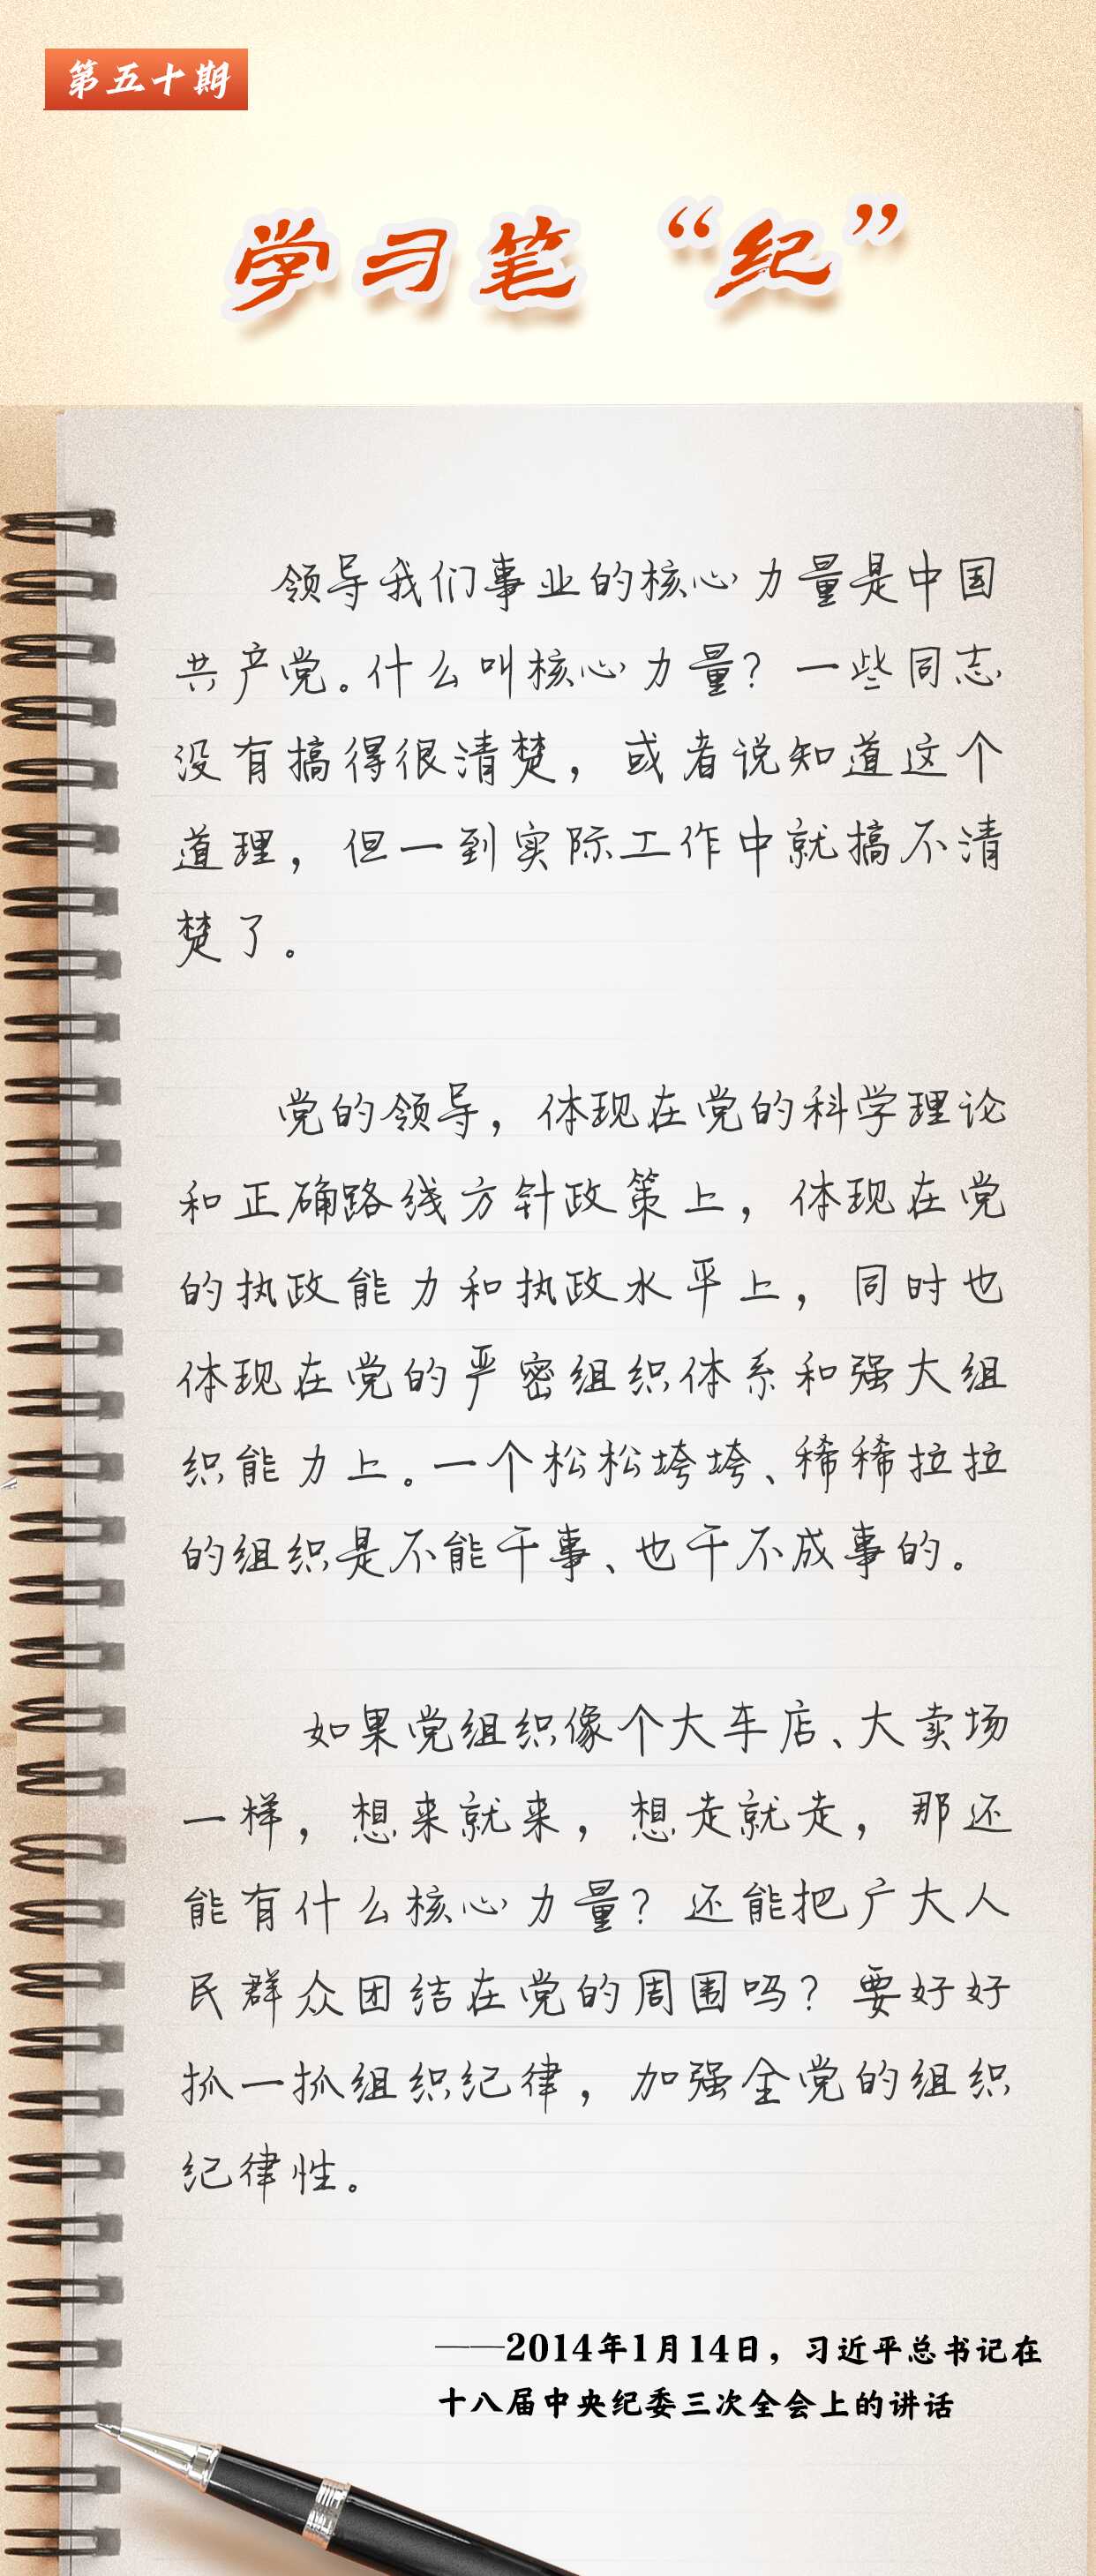 第五十期
学习笔“纪”
领导我们事业的核心力量是中国
共产党。什么叫核心力量？一些同志
没有搞得很清楚，或者说知道这个
道理，但一到实际工作中就搞不清
楚了。
党的领导，体现在党的科学理论
和正确路线方针政策上，体现在党
的执政能力和执政水平上，同时也
体现在党的严密组织体系和强大组
织能力上。一个松松垮垮、稀稀拉拉
的组织是不能干事、也干不成事的。
如果党组织像个大车店、大卖场
一样，想来就来，想走就走，那还
能有什么核心力量？还能把广大人
民群众团结在党的周围吗？要好好
抓一抓组织纪律，加强全党的组织
纪律性。
——2014年1月14日，习近平总书记在
十八届中央纪委三次全会上的讲话